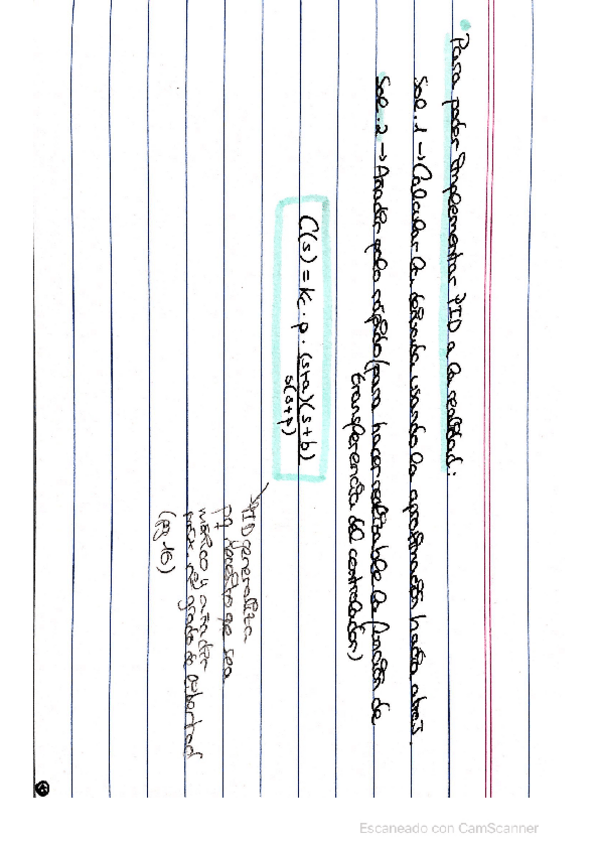 • Para poder implementar PID a la realidad:
Sol. 1 → Calcular la derivada usando la aproximación hacia atrás.
Sol. 2 → Añadir polo rápido (para hacer realizable la función de
transferencia del controlador)
C(s) = Kc · p · (s+a)(s+b) / s(s+p)
→ PID generaliza
necesito que sea
y añadir
grado de libertad
Escaneado con CamScanner